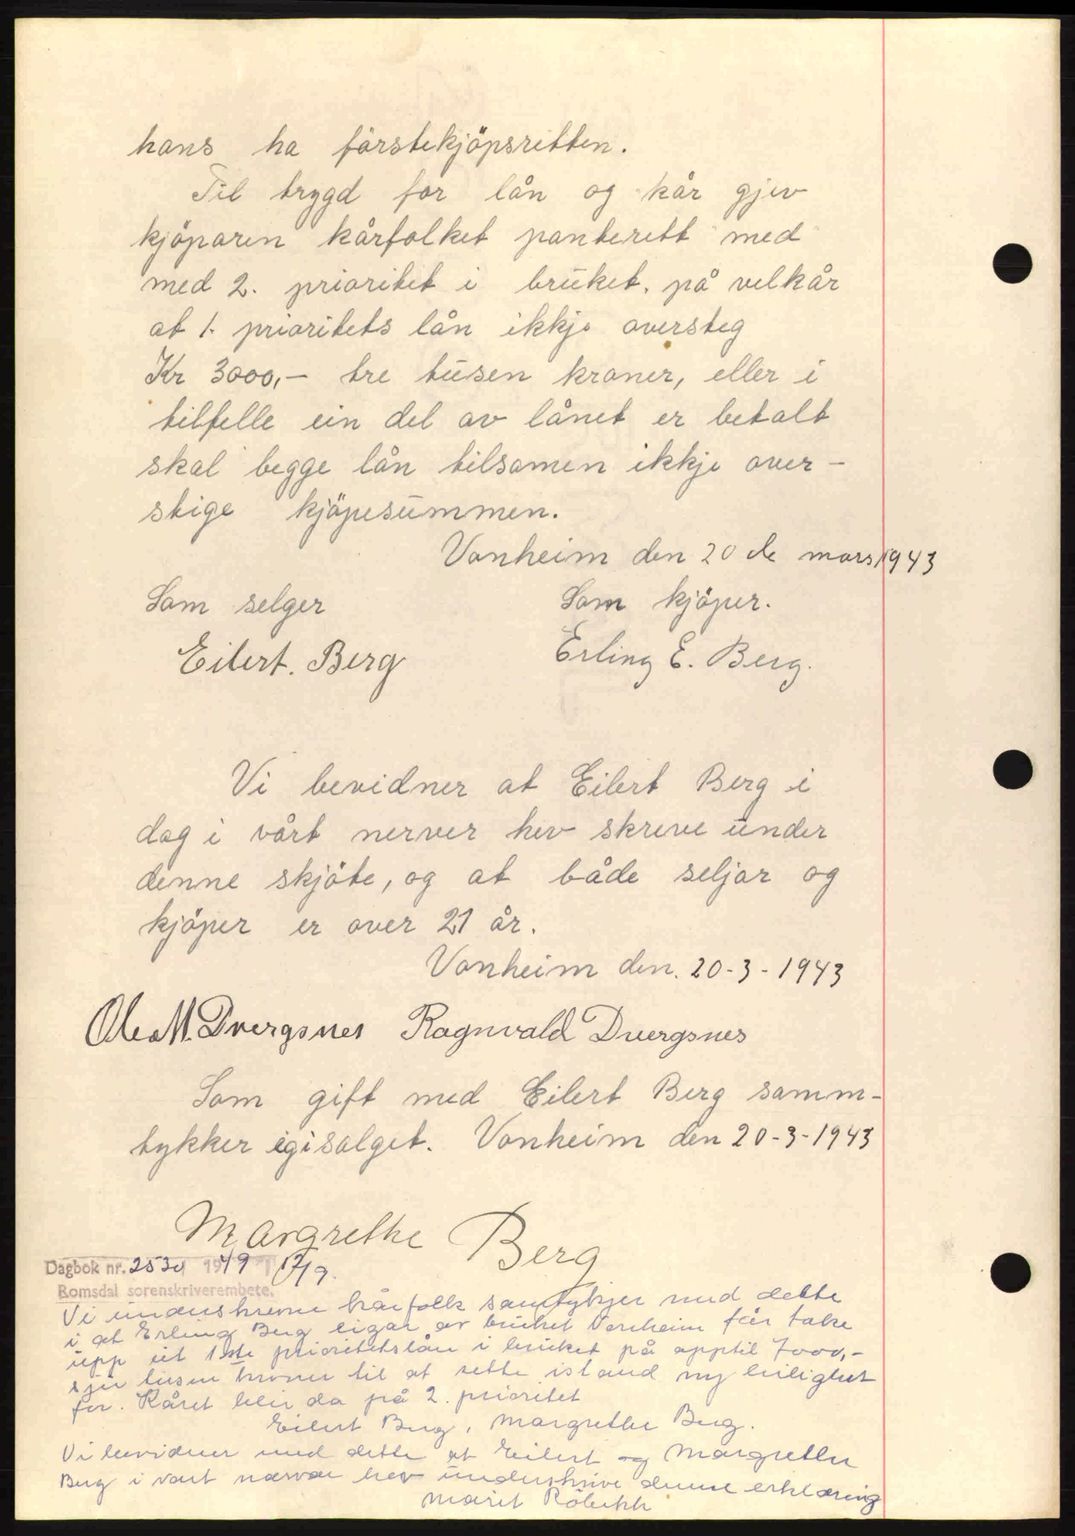 hans ha förstekjöpsretten.
Til trygd for lån og kår gjev
kjöparen kårfolket panterett med
med 2. prioritet i brüket, på velkår
at 1. prioritets lån ikkje oversteg
Kr 3000,- tre tüsen kroner, eller i
tilfelle ein del av lånet er betalt
skal begge lån tilsamen ikkje over-
stige kjöpesümmen.
Vonheim den 20 de mars 1943
Som selger
Som kjöper.
Eilert. Berg
Erling E. Berg.
Vi bevidner at Eilert Berg i
dag i vårt nerver hev skreve ünder
denne skjöte, og at både seljar og
kjöper er over 21 år.
Vonheim den. 20-3-1943
Ole M. Dvergsnes Ragnvald Dvergsnes
Som gift med Eilert Berg samm-
tykker eg i salget. Vonheim den 20-3-1943
Margrethe Berg
Dagbok nr. 2530 1949 12/9.
Romsdal sorenskriverembete.
Vi ünderskrevne kårfolk samtykjer med dette
i at Erling Berg eigar av brüket Vonheim får take
üpp eit 1ste prioritetslån i brüket på opptil 7000,-
sjü tüsen kroner til at sette istand ny leilighet
for. Kåret blir da på 2. prioritet
Eilert Berg, Margrethe Berg.
Vi bevidner med dette at Eilert og Margrethe
Berg i vårt nærvær hev ünderskrive denne erklæring
Marit Röbekk